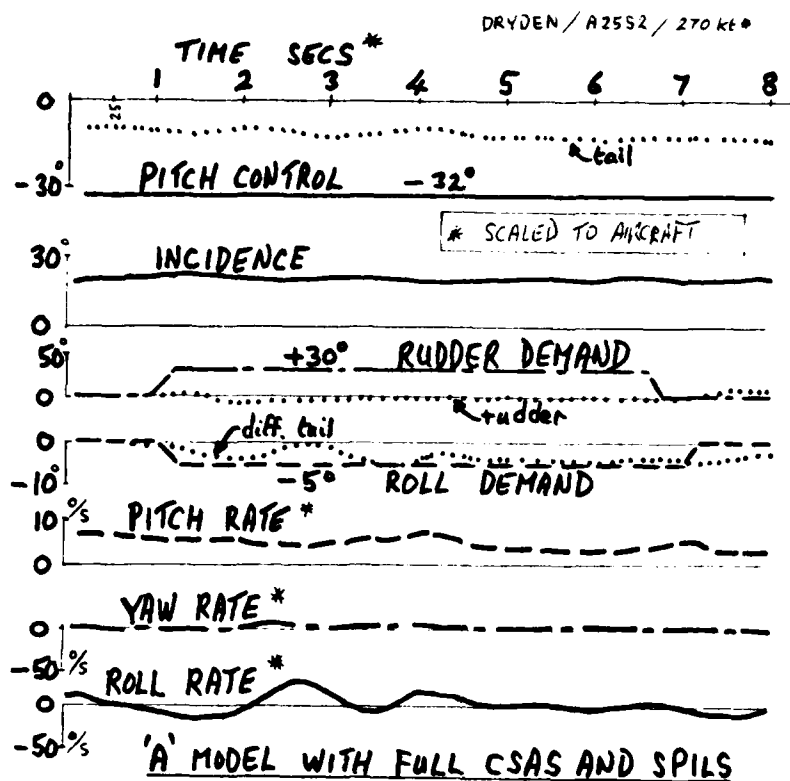 DRYDEN / A25S2 / 270 kt*
TIME SECS*
1 2 3 4 5 6 7 8
0
.25
tail
-30°
PITCH CONTROL -32°
* SCALED TO AIRCRAFT
30°
INCIDENCE
0
50°
+30° RUDDER DEMAND
0
rudder
diff. tail
0
-5° ROLL DEMAND
-10°
10 °/s
PITCH RATE*
0
YAW RATE*
0
-50 °/s
ROLL RATE*
0
-50 °/s
'A' MODEL WITH FULL CSAS AND SPILS